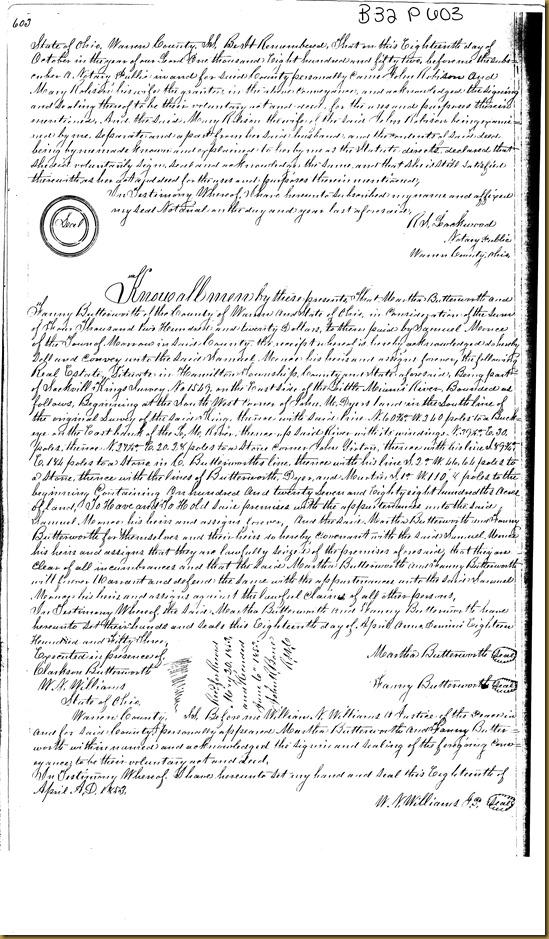 603
B32 P 603
State of Ohio, Warren County, Be it Remembered, That on this Eighteenth day of
October in the year of our Lord One thousand Eight hundred and fifty two, before me the subs-
criber a Notary Public in and for said County personally came John Robison and
Mary Robison his wife the grantors in the above Conveyance, and acknowledged the signing
and Sealing thereof to be their voluntary act and deed, for the uses and purposes therein
mentioned. And the said Mary Robison the wife of the said John Robison being exami-
ned by me, separate and apart from her said husband, and the contents of said deed
being by me made known and explained to her by me as the Statute directs, declared that
she did voluntarily sign, seal and acknowledge the same, and that she is still satisfied
therewith, as her act and deed for the uses and purposes therein mentioned,
In Testimony Whereof, I have hereunto subscribed my name and affixed
my seal Notarial on the day and year last aforesaid,
Seal
Lockwood
Notary Public
Warren County, Ohio
Know all men by these presents, That Martha Butterworth and
Fanny Butterworth of the County of Warren And State of Ohio, in Consideration of the sum
of Thousand two Hundred and twenty Dollars, to them paid by Samuel
of the Town of Morrow in said County, the receipt whereof is hereby acknowledged do hereby
Sell and Convey unto the said Samuel his heirs and assigns forever, the following
Real Estate, Situate in Hamilton Township County and State aforesaid, Being part
of Kings Survey No 1549, on the East side of the Little Miami River, Bounded as
follows, Beginning at the South West corner of John M. Dyers land in the South line of
the original Survey of the said King, thence with said line W 260 poles to a Buck-
eye on the East bank of the L. M. River, thence up said River with its windings
poles, thence E. poles to a Stone Corner John thence with his line
E. 184 poles to a Stone in C. Butterworths line, thence with his line S. 2° W. 66.64 poles to
a Stone, thence with the lines of Butterworth, Dyer, and poles to the
beginning Containing One hundred And twenty Seven and Eighty eight hundredths Acres
of land, To Have and To Hold said premises with the appurtenances unto the said
Samuel his heirs and assigns forever, And the said Martha Butterworth and Fanny
Butterworth for themselves and their heirs do hereby covenant with the said Samuel
his heirs and assigns that they are lawfully seized of the premises aforesaid, that they are
Clear of all incumbrances and that the said Martha Butterworth And Fanny Butterworth
will forever Warrant and defend the same with the appurtenances unto the said Samuel
his heirs and assigns against the lawful Claims of all other persons,
In Testimony Whereof the said Martha Butterworth And Fanny Butterworth have
hereunto set their hands and seals this Eighteenth day of April Anno Domini Eighteen
Hundred and Fifty Three,
Executed in presence of
Clarkson Butterworth
W. N. Williams
Martha Butterworth Seal
Fanny Butterworth Seal
State of Ohio,
Warren County, Before me William N. Williams a Justice of the Peace in
and for said County, personally appeared Martha Butterworth And Fanny Butter-
worth within named and acknowledged the signing and sealing of the foregoing Conv-
eyance to be their voluntary act and deed,
In Testimony Whereof, I have hereunto set my hand and seal this Eighteenth of
April A.D. 1853.
W. N. Williams J.P. Seal